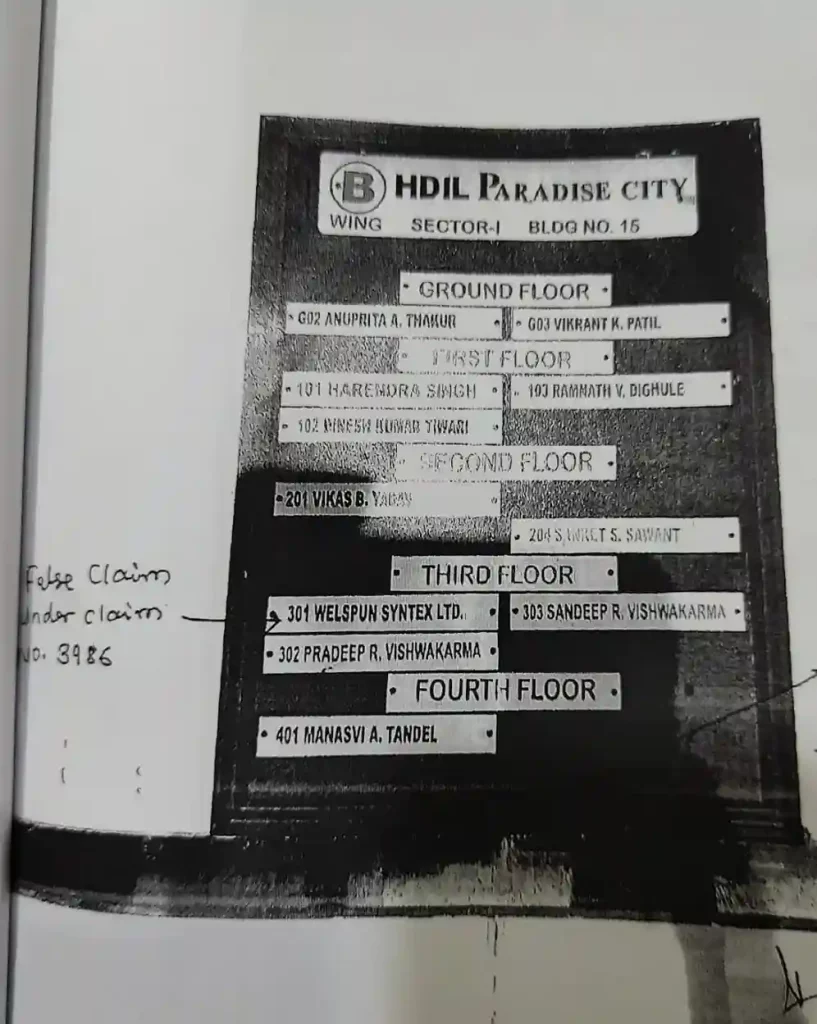 B HDIL PARADISE CITY
WING SECTOR-I BLDG NO. 15
GROUND FLOOR
G02 ANUPRITA A. THAKUR
G03 VIKRANT K. PATIL
FIRST FLOOR
101 HARENDRA SINGH
103 RAMNATH V. DIGHULE
102 DINESH KUMAR TIWARI
SECOND FLOOR
201 VIKAS B. YADAV
204 S. SAWANT
THIRD FLOOR
301 WELSPUN SYNTEX LTD.
303 SANDEEP R. VISHWAKARMA
302 PRADEEP R. VISHWAKARMA
FOURTH FLOOR
401 MANASVI A. TANDEL
False Claim
Under claim
No. 3986